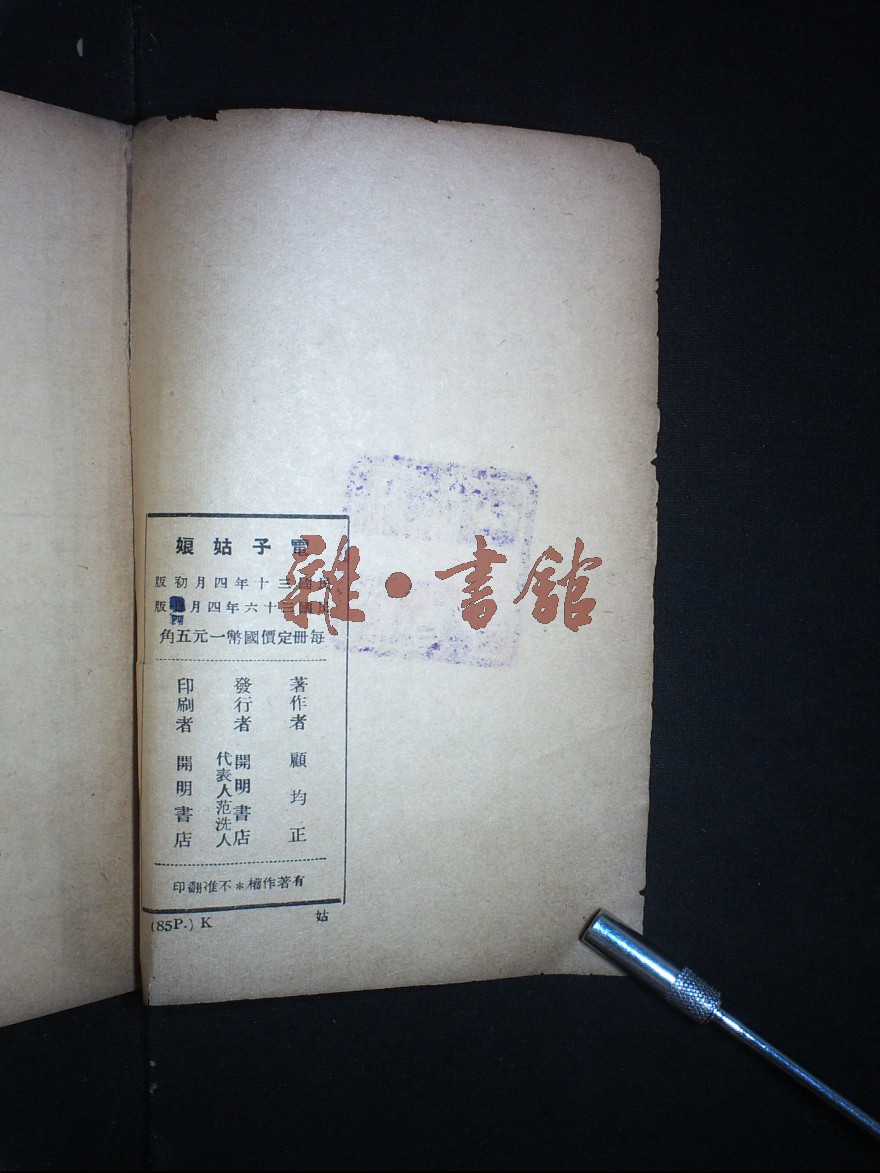 電子姑娘
民國三十年四月初版
民國三十六年四月四版
每冊定價國幣一元五角
著作者 顧均正
發行者 開明書店
代表人范洗人
印刷者 開明書店
有著作權＊不准翻印
(85P.) K
姑
雜·書館